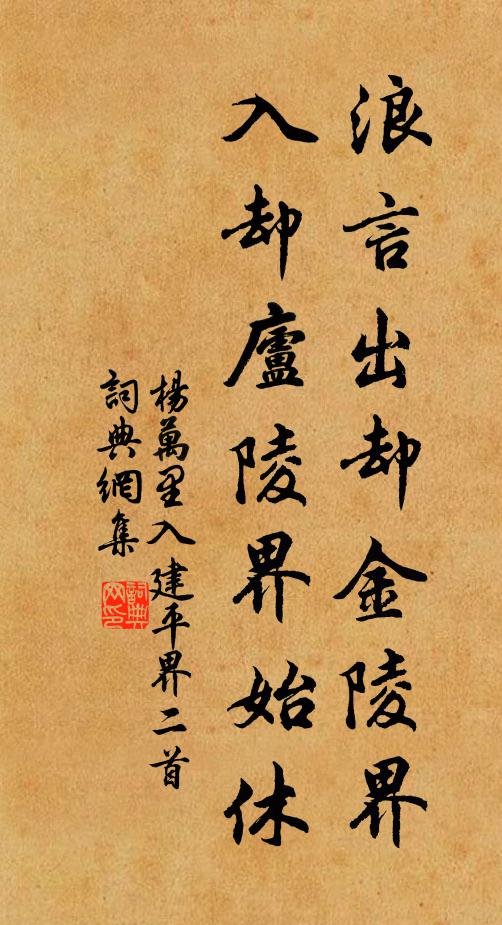 浪言出却金陵界
入却廬陵界始休
楊萬里入建平界二首
詞典網集
詞典网印